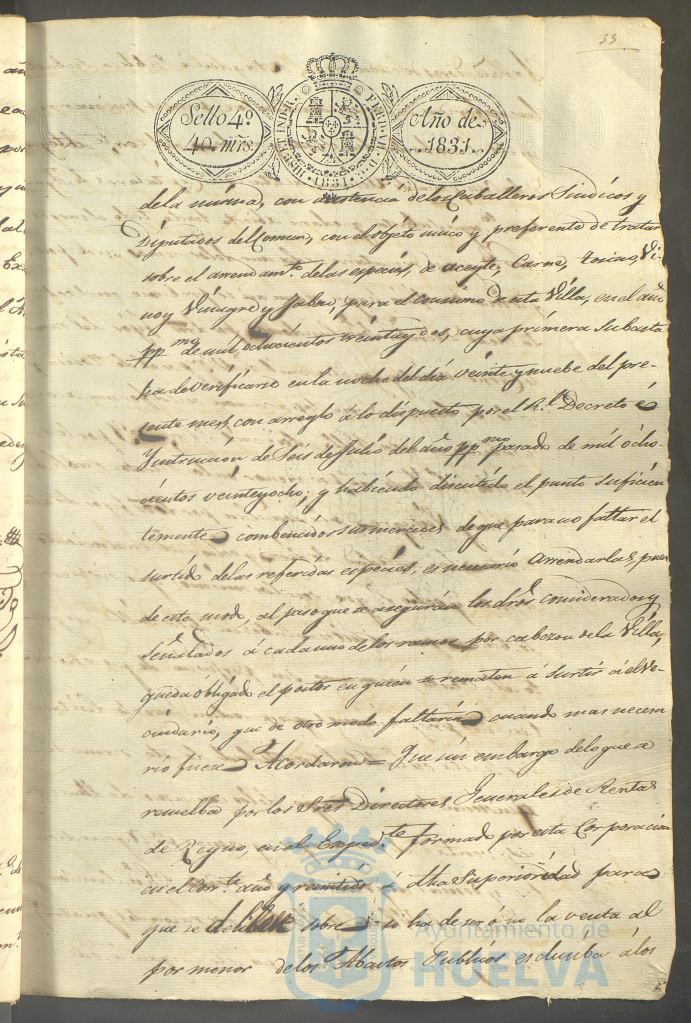 33
Sello 4º
40 mrs.
HISPAN. ET IND. R. FERD. VII. D. G.
1831
Año de
1831.
de la misma, con asistencia de los Caballeros Sindicos y
Diputados del Comun, con el objeto unico y preferente de tratar
sobre el arrendamto. de las especies, de aceyte, Carne, tosino, Vi-
no y Vinagre y Jabon, para el consumo de esta Villa, en el año
ppmo de mil ochocientos treinta y dos, cuya primera Subasta
ha de verificarse en la noche del dia veinte y nuebe del pre-
sente mes, con arreglo á lo dispuesto por el Rl. Decreto é
Ynstruccion de Seis de Julio del año ppmo pasado de mil ocho-
cientos veinte y ocho, y habiendo discutido el punto suficien
temente combencidos sus mercedes de que para no faltar el
surtido de las referidas especies, es necesario arrendarlas, pues
de este modo, al paso que se aseguran los drōs. considerados y
señalados á cada uno de los ramos por cabezon de la Villa,
queda obligado el postor en quien se rematen á surtir á el Ve-
cindario, que de otro modo faltaria cuando mas necesa
rio fuere Acordaron = Que sin embargo de lo que se
resuelba por los Sres Directores Generales de Rentas
de Reyno, en el Expedte. formado por esta Corporacion
en el corte. año y remitido á dha Superioridad para
que se delibere sobre si ha de ser ó no la venta al
por menor de los Abastos Publicos esclusiba á los
Ayuntamiento de
HUELVA